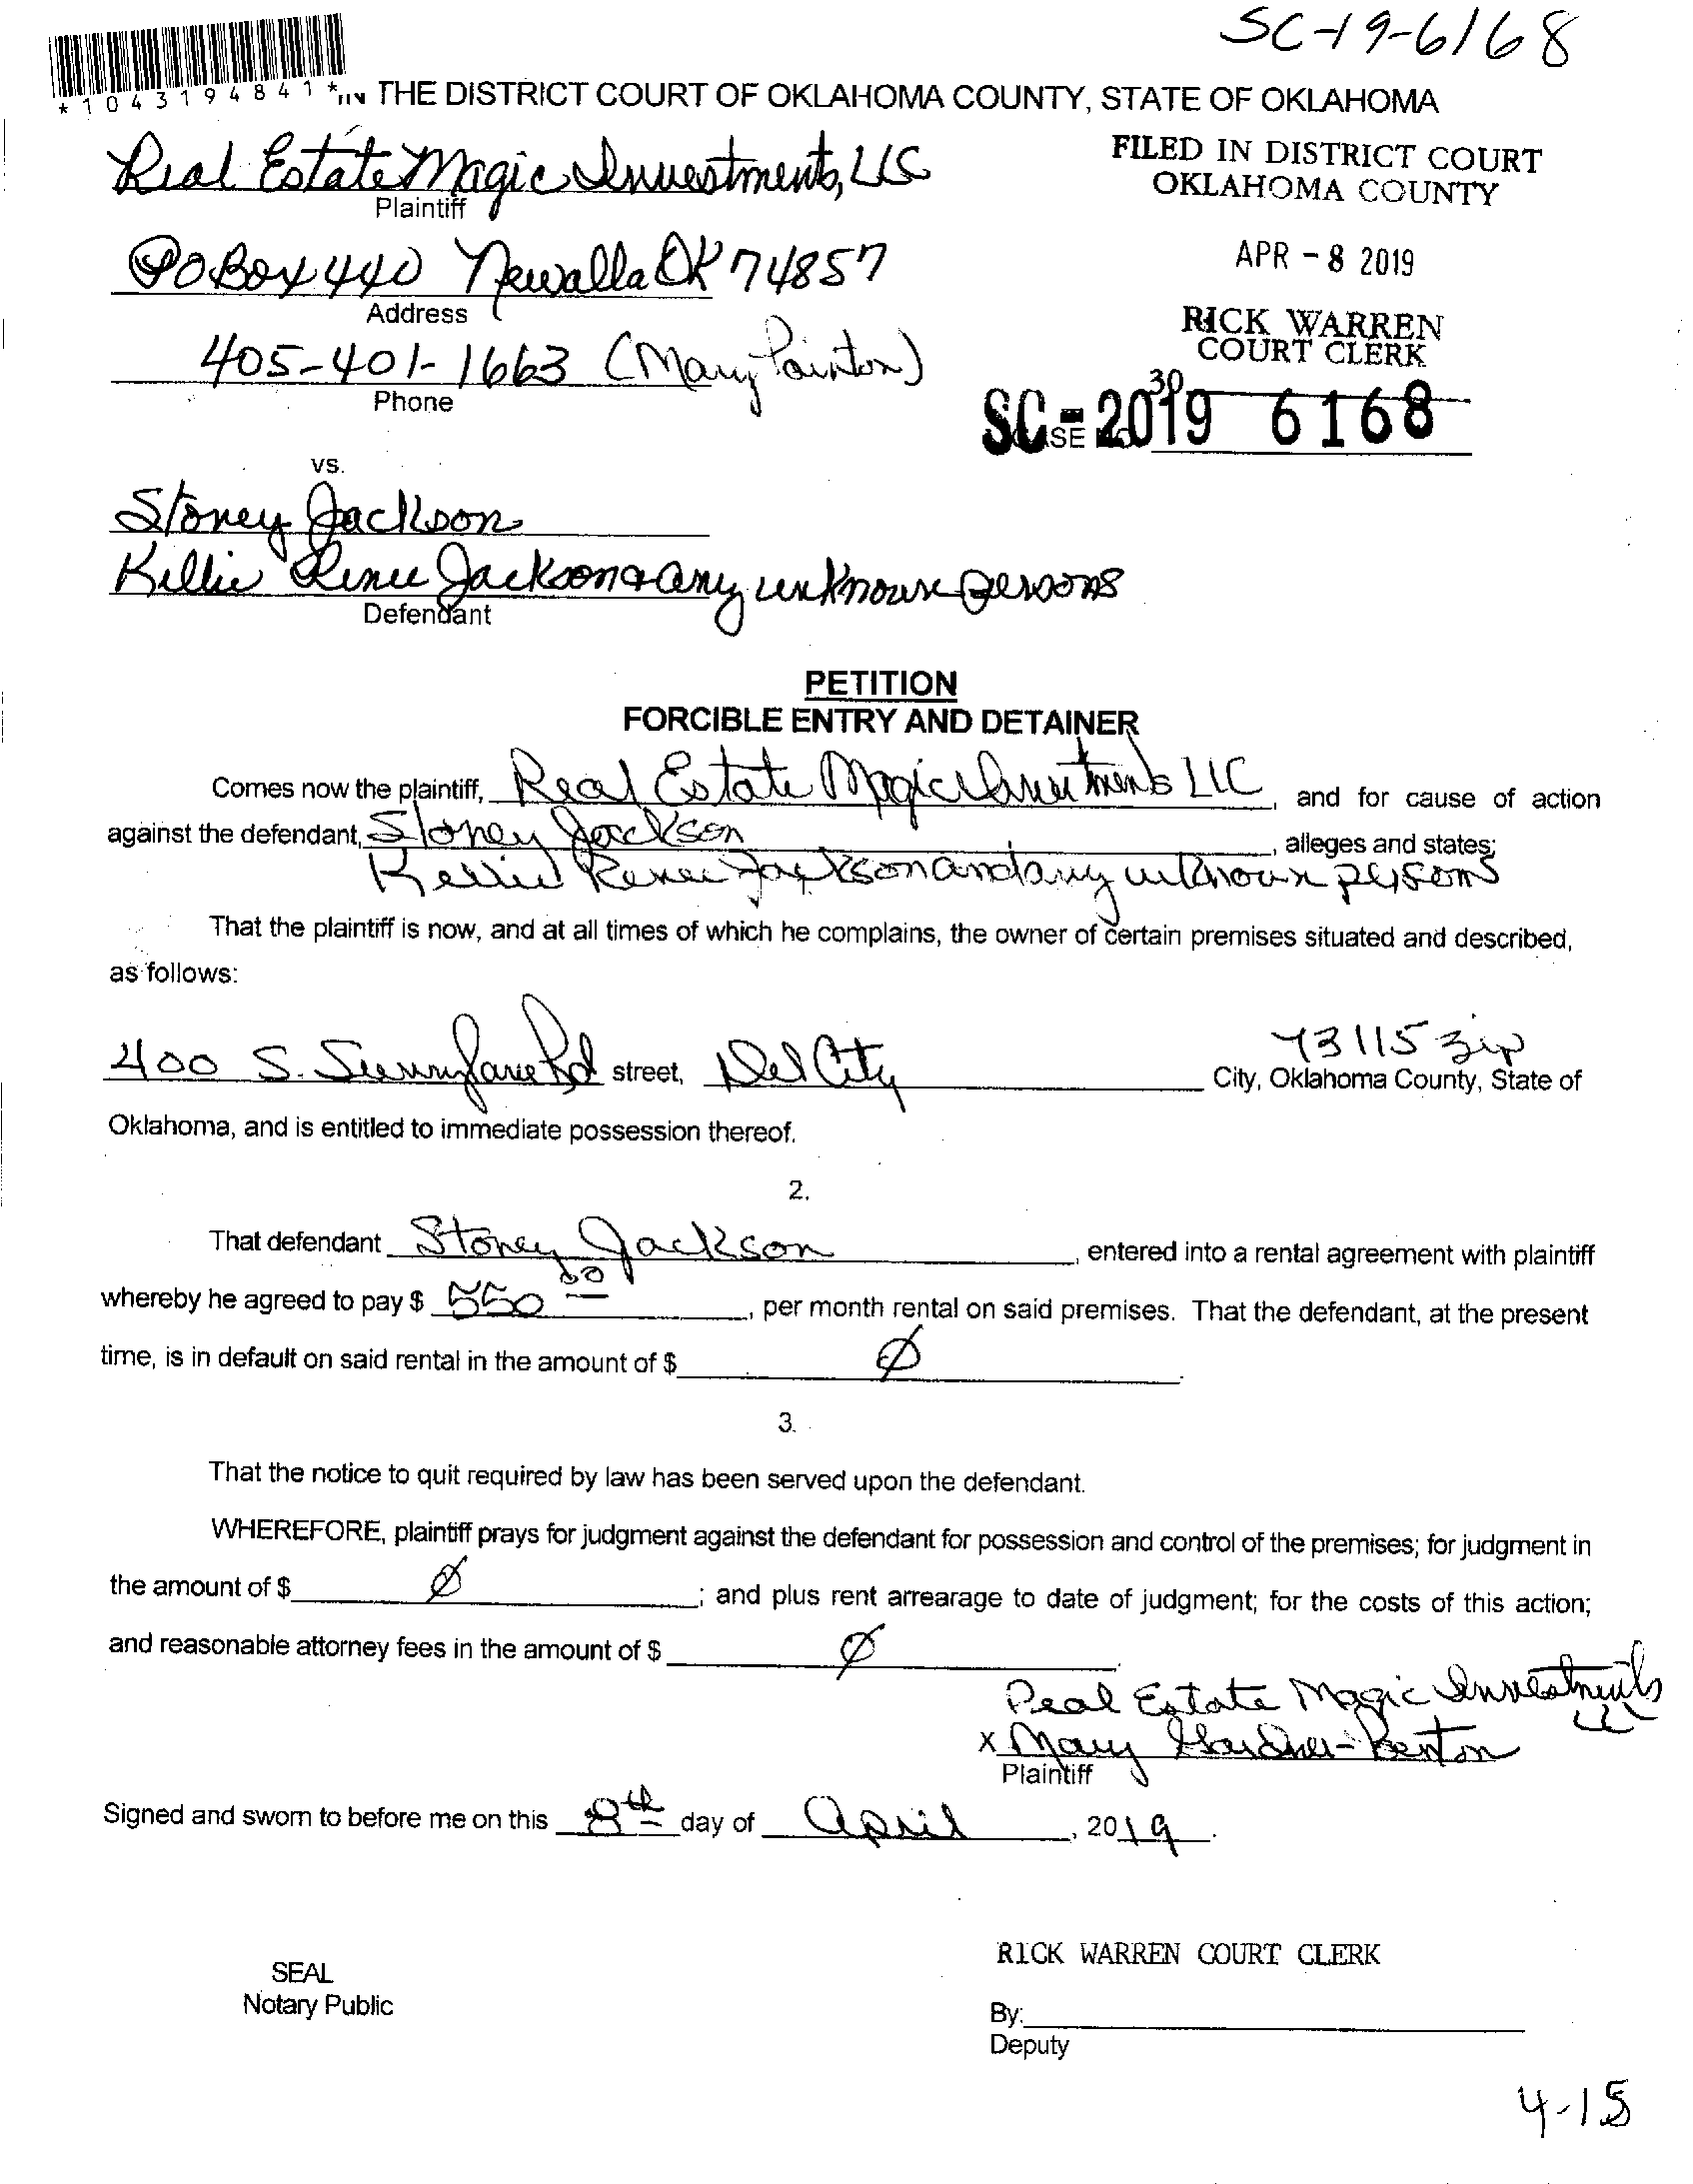 SC-19-6168
*1043194841*
IN THE DISTRICT COURT OF OKLAHOMA COUNTY, STATE OF OKLAHOMA
Real Estate Magic Investments, LLC
Plaintiff
FILED IN DISTRICT COURT
OKLAHOMA COUNTY
PO Box 440 Newalla OK 74857
Address
APR - 8 2019
405-401-1663 (Mary
Phone
RICK WARREN
COURT CLERK
30
SC-2019 6168
vs.
Stoney Jackson
Kellie Renee Jackson & any unknown persons
Defendant
PETITION
FORCIBLE ENTRY AND DETAINER
Comes now the plaintiff, Real Estate Magic Investments LLC, and for cause of action
against the defendant, Stoney Jackson, alleges and states;
Kellie Renee Jackson and any unknown persons
That the plaintiff is now, and at all times of which he complains, the owner of certain premises situated and described,
as follows:
73115 zip
400 S. Sunnylane Rd street, Del City City, Oklahoma County, State of
Oklahoma, and is entitled to immediate possession thereof.
2.
That defendant Stoney Jackson, entered into a rental agreement with plaintiff
whereby he agreed to pay $ 550 00, per month rental on said premises. That the defendant, at the present
time, is in default on said rental in the amount of $ Ø.
3.
That the notice to quit required by law has been served upon the defendant.
WHEREFORE, plaintiff prays for judgment against the defendant for possession and control of the premises; for judgment in
the amount of $ Ø; and plus rent arrearage to date of judgment; for the costs of this action;
and reasonable attorney fees in the amount of $ Ø.
Real Estate Magic Investments LLC
x Mary
Plaintiff
Signed and sworn to before me on this 8th day of April, 2019.
SEAL
Notary Public
RICK WARREN COURT CLERK
By:
Deputy
4-15